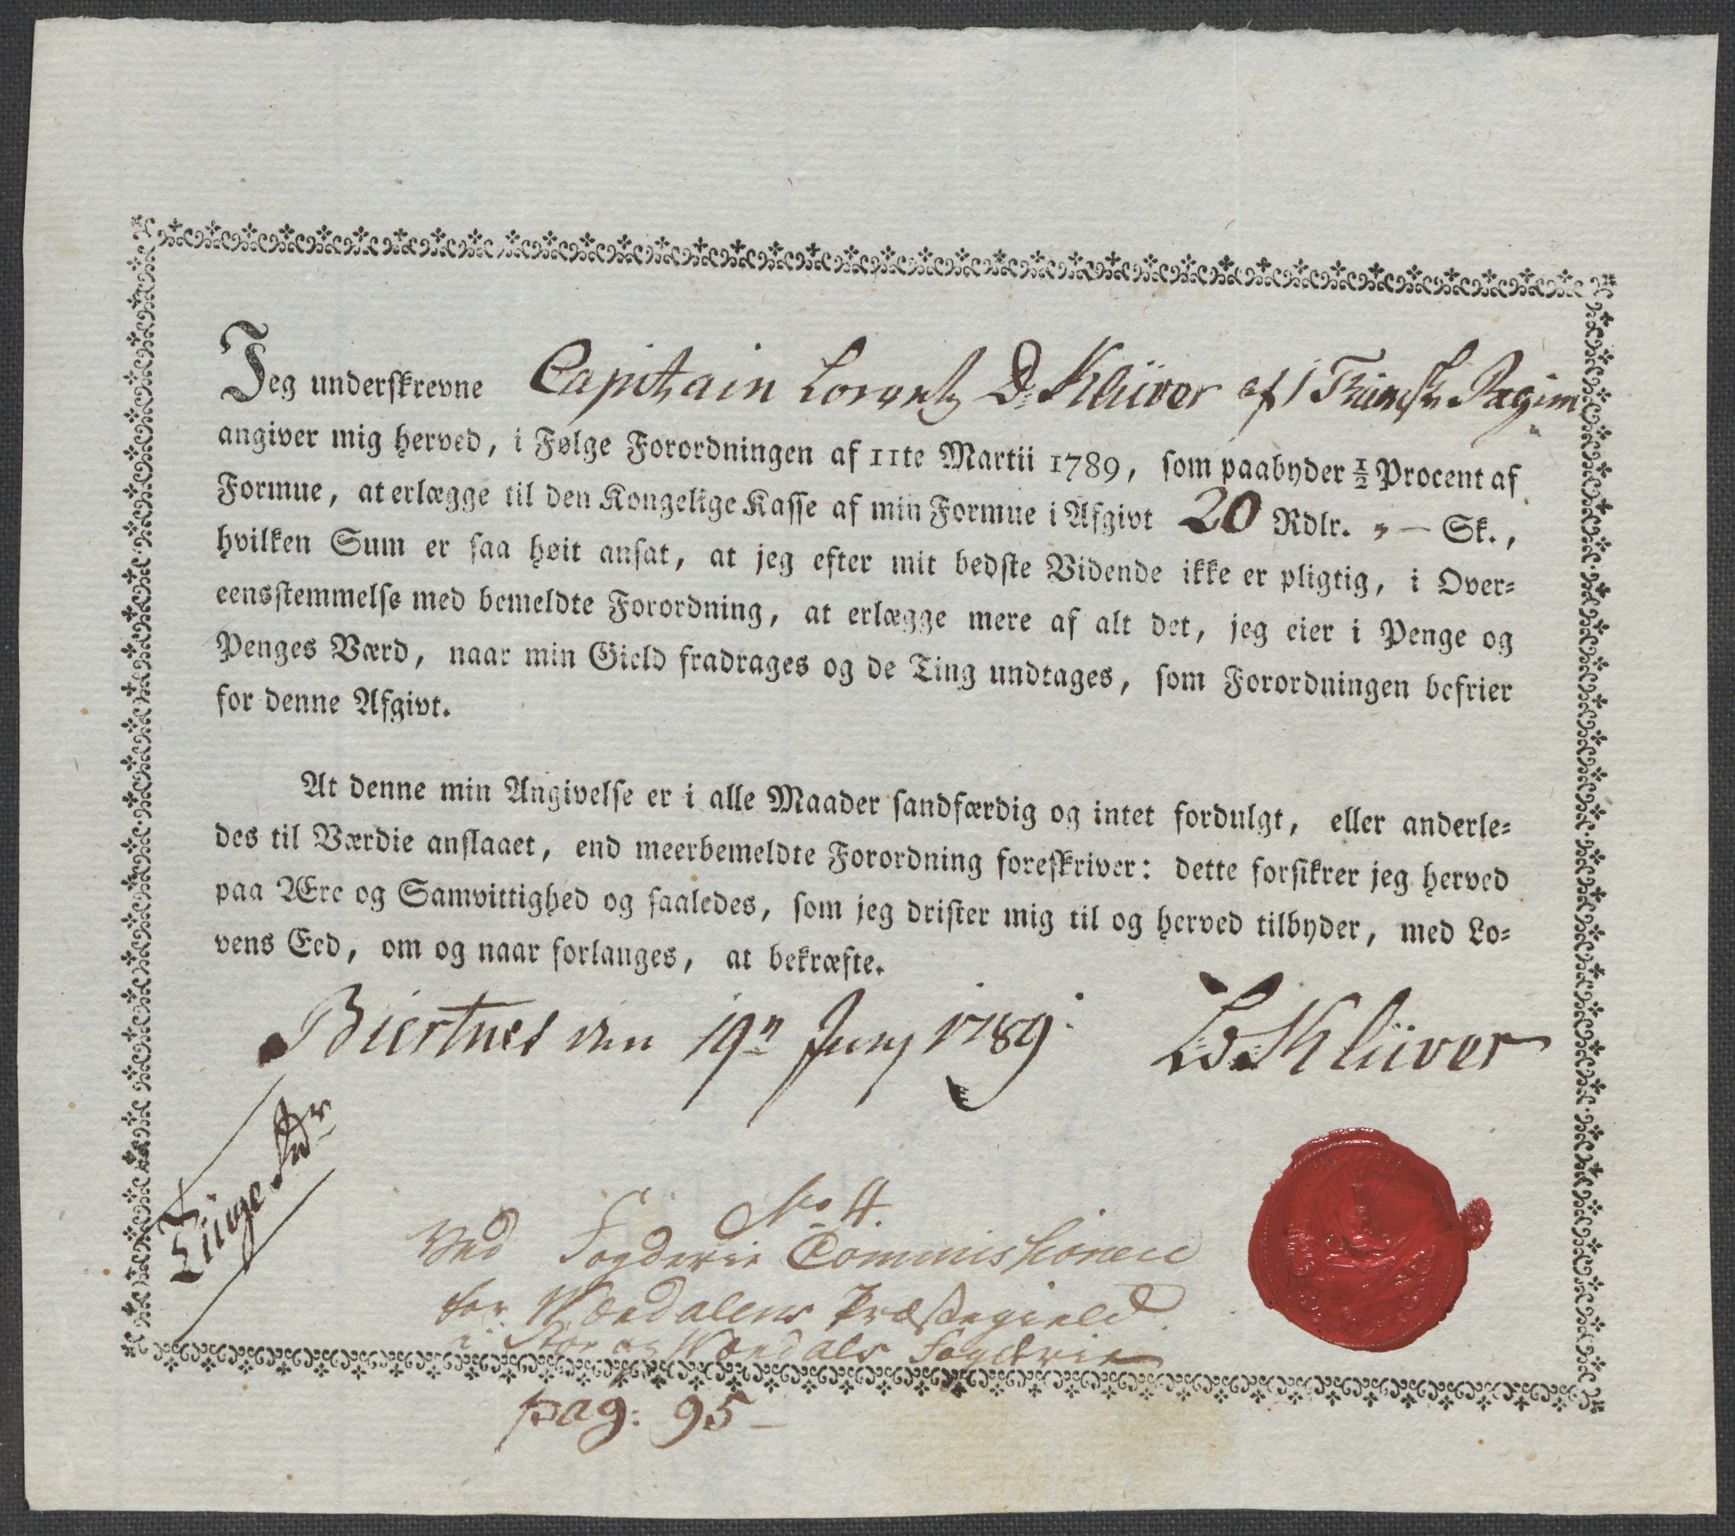 Jeg underskrevne Capitain Lorentz D: Klüver af 1 Trunhs Regim
angiver mig herved, i Følge Forordningen af 11te Martii 1789, som paabyder ½ Procent af
Formue, at erlægge til den Kongelige Kasse af min Formue i Afgivt 20 Rdlr. „ — Sk.,
hvilken Sum er saa høit ansat, at jeg efter mit bedste Vidende ikke er pligtig, i Over-
eensstemmelse med bemeldte Forordning, at erlægge mere af alt det, jeg eier i Penge og
Penges Værd, naar min Gield fradrages og de Ting undtages, som Forordningen befrier
for denne Afgivt.
At denne min Angivelse er i alle Maader sandfærdig og intet fordulgt, eller anderle-
des til Værdie anslaaet, end meerbemeldte Forordning foreskriver: dette forsikrer jeg herved
paa Ære og Samvittighed og saaledes, som jeg drister mig til og herved tilbyder, med Lo-
vens Eed, om og naar forlanges, at bekræfte.
Biertnes den 19n Juny 1789. LDKlüver
Tiuge Rdr
No 4.
Ved Fogderie Commissionen
for Værdalens Præstegield
i Stør og Værdals Fogderie
pag: 95-